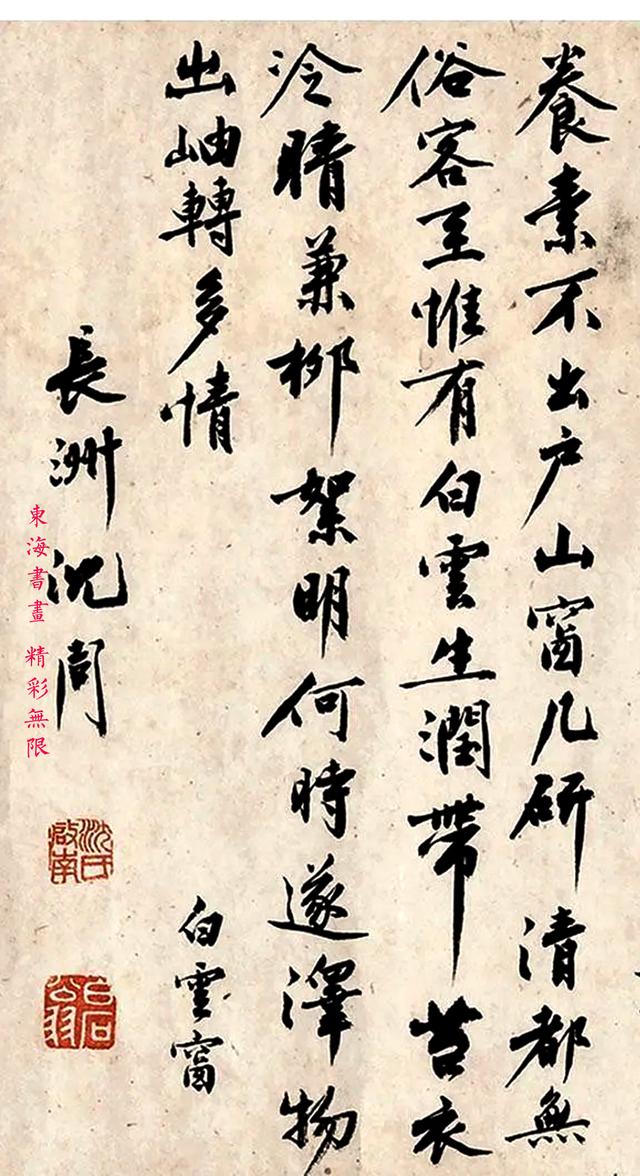 養素不出戶山窗几研清都無
俗客至惟有白雲生潤帶苔衣
泠晴兼柳絮明何時遂澤物
出岫轉多情
白雲窗
長洲沈周
沈氏啟南
石翁
東海書畫 精彩無限